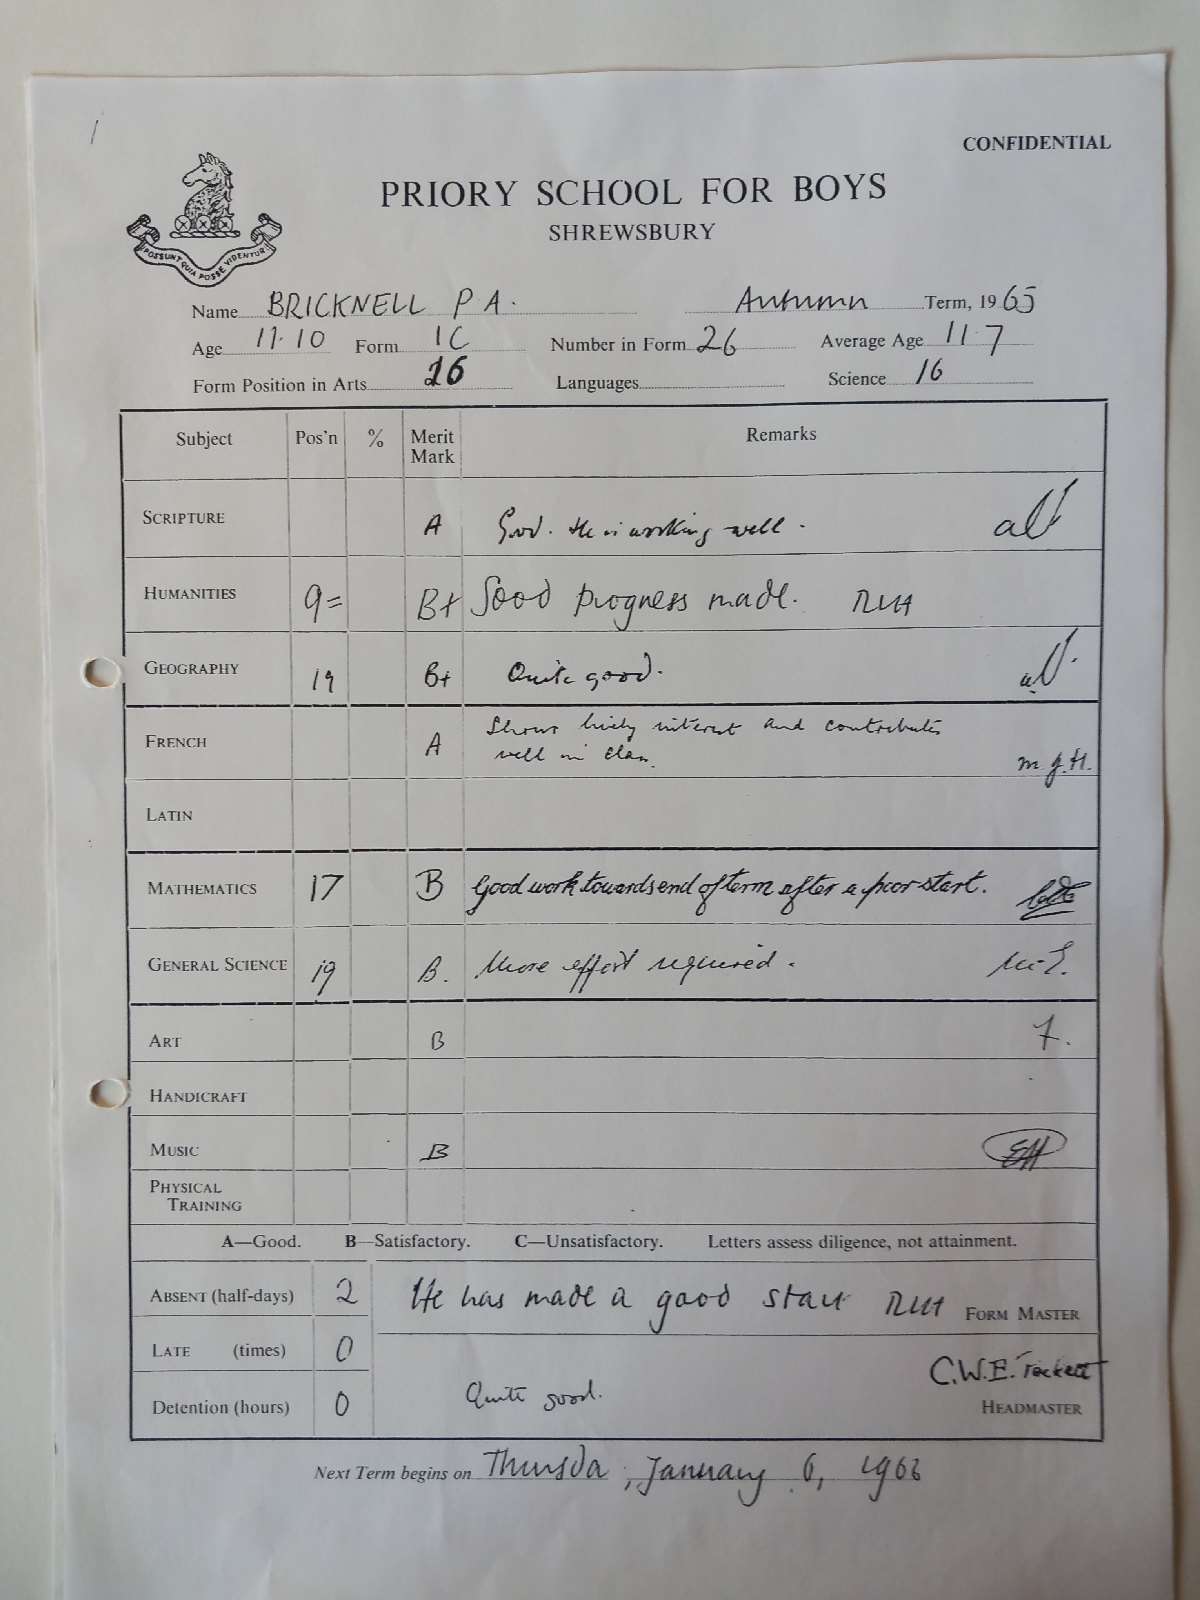 CONFIDENTIAL
PRIORY SCHOOL FOR BOYS
SHREWSBURY
POSSUNT QUIA POSSE VIDENTUR
Name BRICKNELL P A. Autumn Term, 1965
Age 11.10 Form 1C Number in Form 26 Average Age 11.7
Form Position in Arts 16 Languages Science 16
Subject Pos'n % Merit Mark Remarks
SCRIPTURE A Good. He is working well.
HUMANITIES 9= B+ Good progress made. RUH
GEOGRAPHY 19 B+ Quite good.
FRENCH A Shows lively interest and contributes
well in class. M.J.H.
LATIN
MATHEMATICS 17 B Good work towards end of term after a poor start.
GENERAL SCIENCE 19 B. More effort required.
ART B
HANDICRAFT
MUSIC B EH
PHYSICAL
TRAINING
A—Good. B—Satisfactory. C—Unsatisfactory. Letters assess diligence, not attainment.
ABSENT (half-days) 2 He has made a good start RUH FORM MASTER
LATE (times) 0
C.W.E. Peckett
Detention (hours) 0 Quite good. HEADMASTER
Next Term begins on Thursda, January 6, 1966